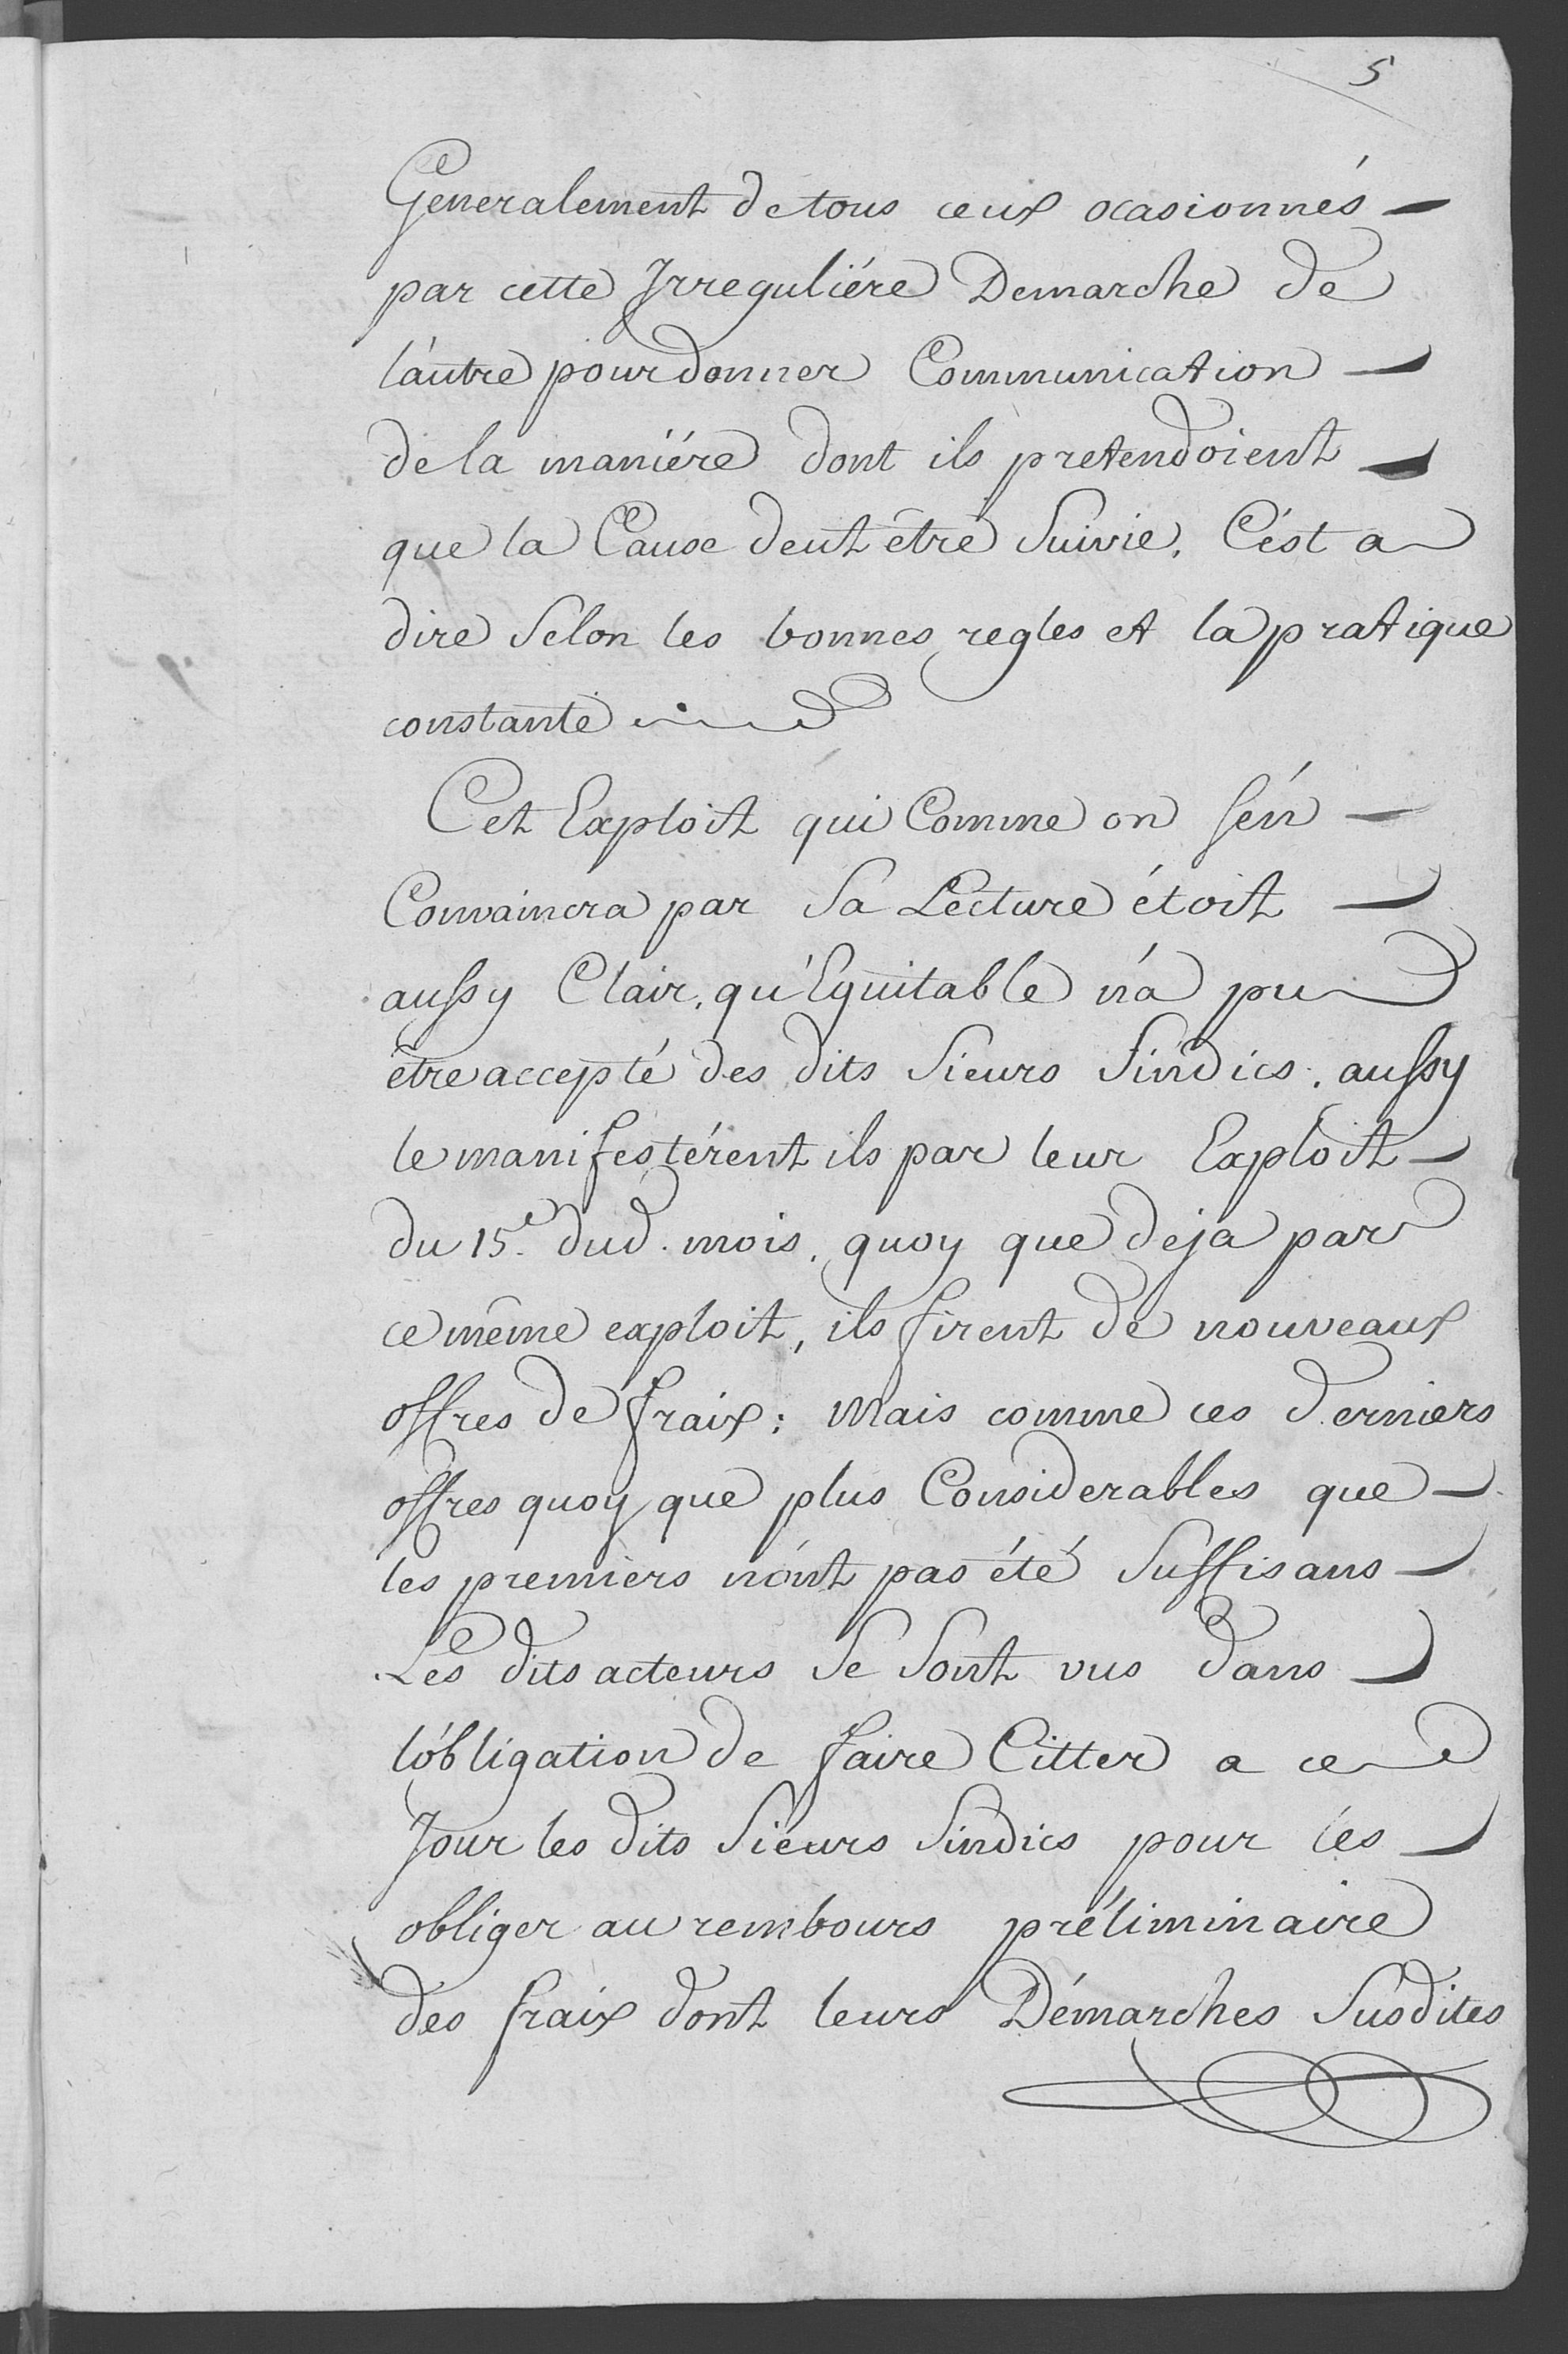 5
Generalement de tous ceux ocasionnés
par cette Jrreguliére Demarche de
l'autre pour donner Communication
de la maniére dont ils pretendoient
que la Cause deut être Suivie. C'est a
dire Selon les bonnes regles et la pratique
constante
Cet Exploit qui Comme on s'en
Convaincra par Sa Lecture étoit
aussy Clair, qu'Equitable n'a pu
être accepté des dits Sieurs Sindics, aussy
le manifestérent ils par leur Exploit
du 15.e dud. mois, quoy que deja par
ce même exploit, ils firent de nouveaux
offres de fraix; Mais comme ces derniers
offres quoy que plus Considerables que
les premiers n'ont pas été Suffisans
Les dits acteurs Se Sont vus dans
l'obligation de faire Citter a ce
Jour les dits Sieurs Sindics pour les
obliger au rembours préliminaire
des fraix dont leurs Démarches Susdites